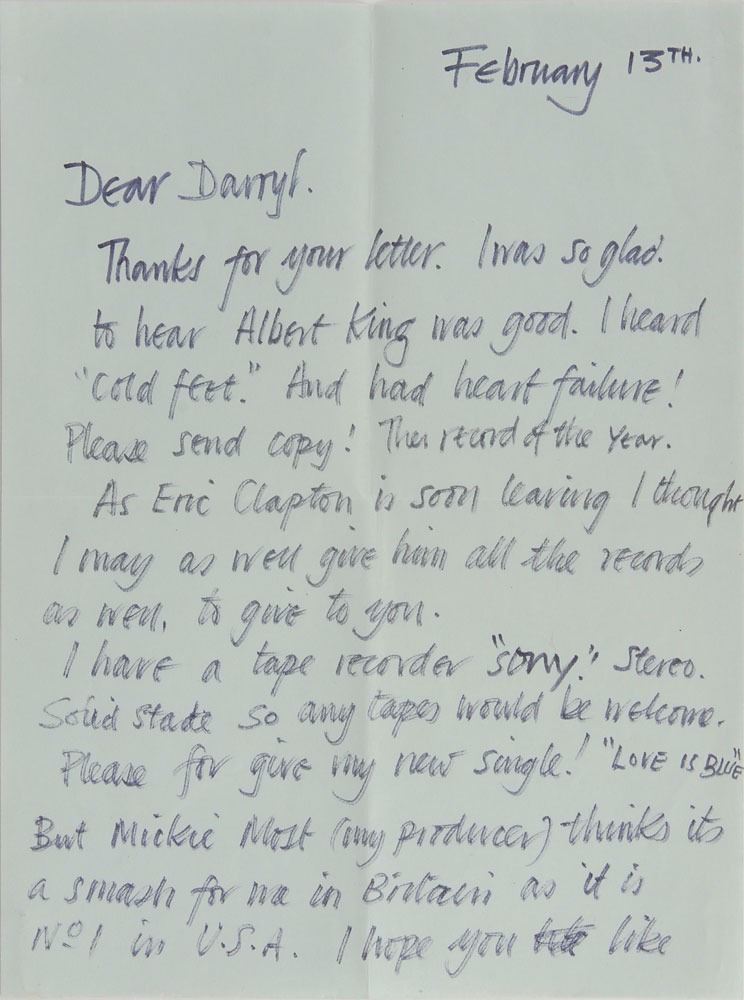 February 13TH.
Dear Darryl.
Thanks for your letter. I was so glad.
to hear Albert King was good. I heard
"Cold feet." And had heart failure!
Please send copy! The record of the Year.
As Eric Clapton is soon leaving I thought
I may as well give him all the records
as well, to give to you.
I have a tape recorder "Sony." Stereo.
Solid state so any tapes would be welcome.
Please for give my new single! "LOVE IS BLUE"
But Mickie Most (my producer) thinks its
a smash for me in Britain as it is
No 1 in U.S.A. I hope you like